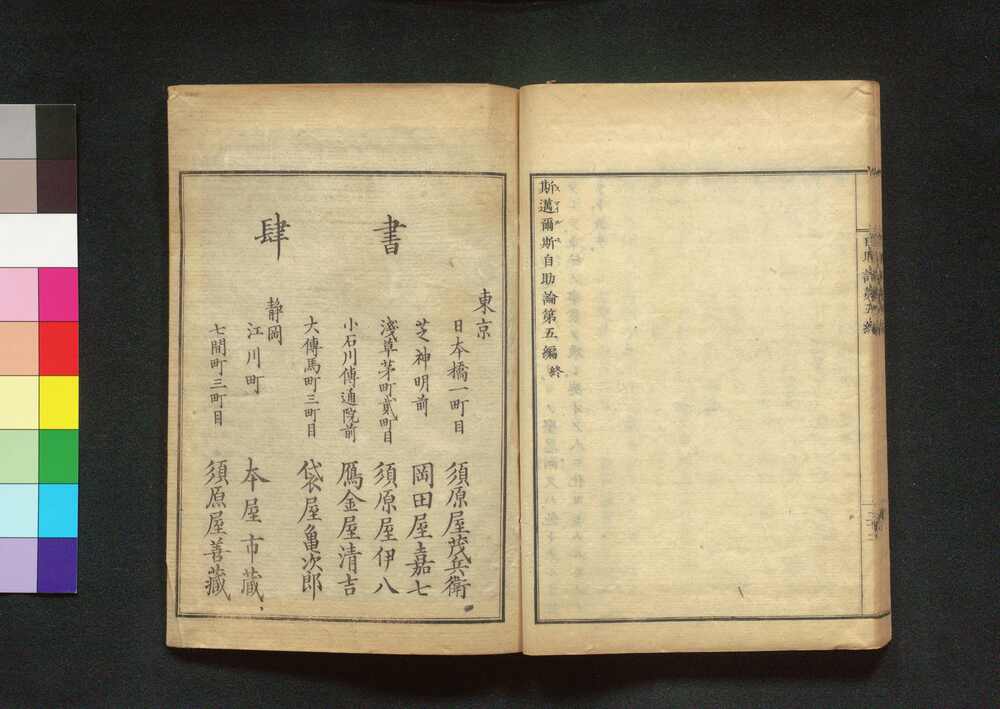 斯邁爾斯自助論第五編終
書肆
東京
日本橋一町目 須原屋茂兵衛
芝神明前 岡田屋嘉七
淺草茅町貳町目 須原屋伊八
小石川傳通院前 鴈金屋清吉
大傳馬町三町目 袋屋亀次郎
静岡
江川町 本屋市蔵
七間町三町目 須原屋善蔵